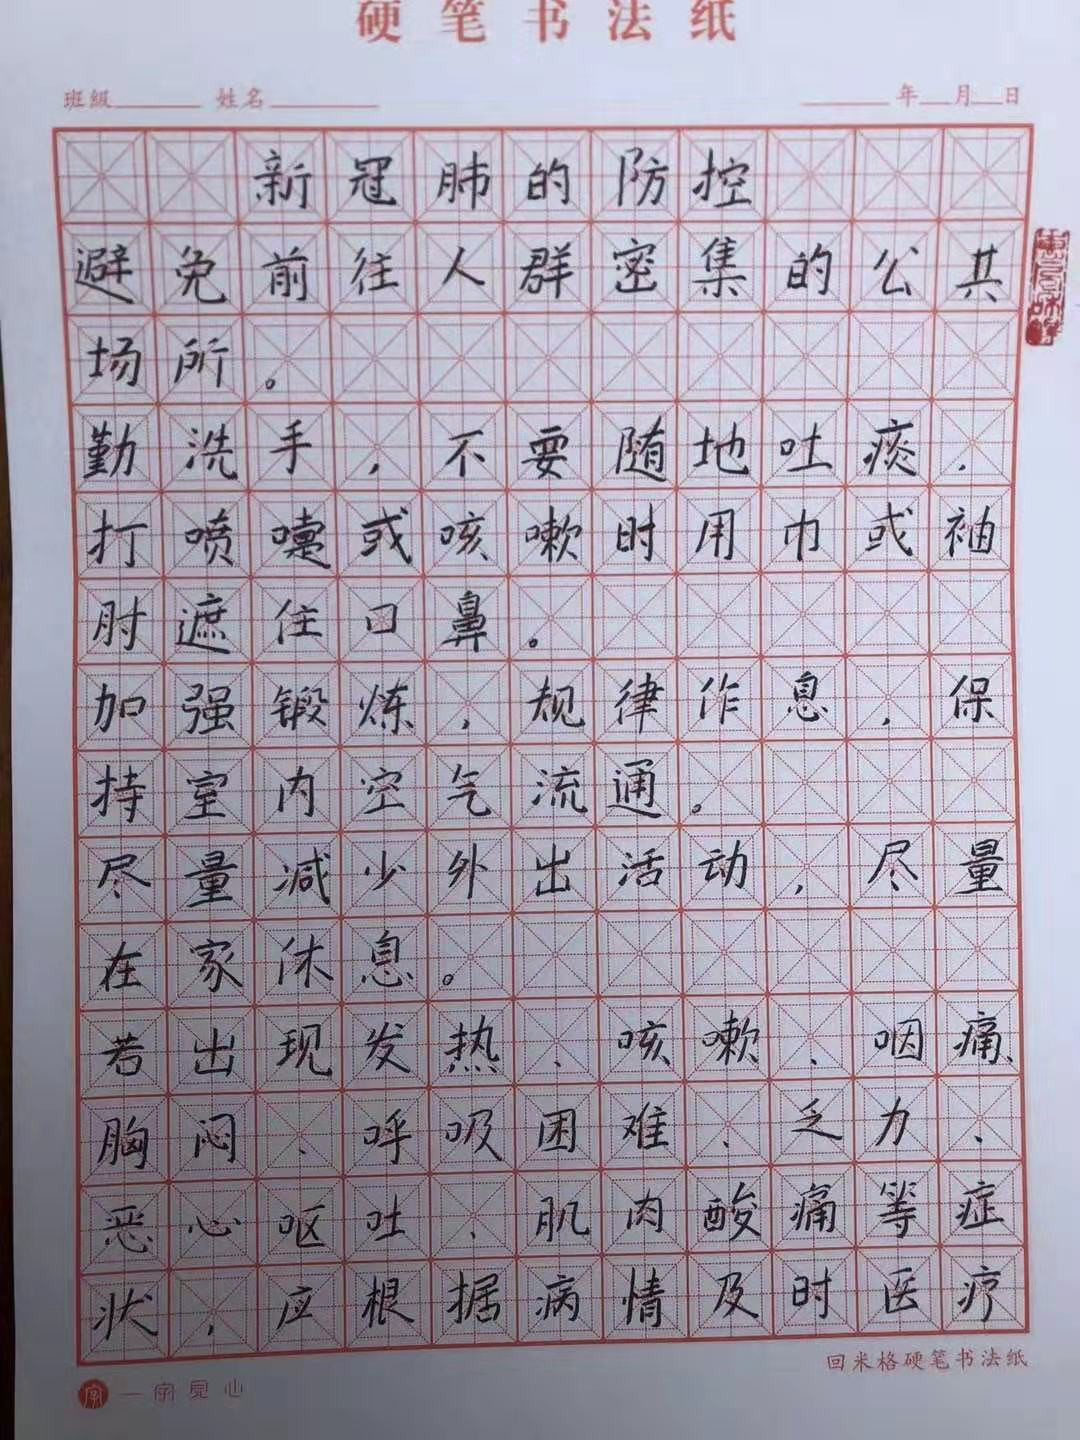 硬笔书法纸
班级 姓名 年 月 日
新冠肺的防控
避免前往人群密集的公共
场所。
勤洗手,不要随地吐痰.
打喷嚏或咳嗽时用巾或袖
肘遮住口鼻。
加强锻炼,规律作息,保
持室内空气流通。
尽量减少外出活动,尽量
在家休息。
若出现发热、咳嗽、咽痛、
胸闷、呼吸困难、乏力、
恶心呕吐、肌肉酸痛等症
状,应根据病情及时医疗
回米格硬笔书法纸
一字见心